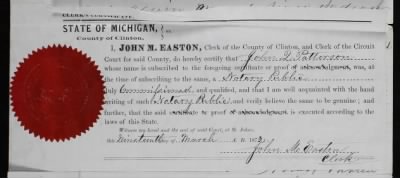 CLERK'S CERTIFICATE.
STATE OF MICHIGAN,
County of Clinton. ss.
I, JOHN M. EASTON, Clerk of the County of Clinton, and Clerk of the Circuit
Court for said County, do hereby certify that John Q. Patterson
whose name is subscribed to the foregoing certificate or proof of acknowledgment, was, at
the time of subscribing to the same, a Notary Public
duly Commissioned and qualified, and that I am well acquainted with the hand
writing of such Notary Public, and verily believe the same to be genuine; and
further, that the said certificate or proof of acknowledgment is executed according to the
laws of this State.
Witness my hand and the seal of said Court, at St. Johns,
the Nineteenth of March A. D. 187
John M. Easton
Clerk